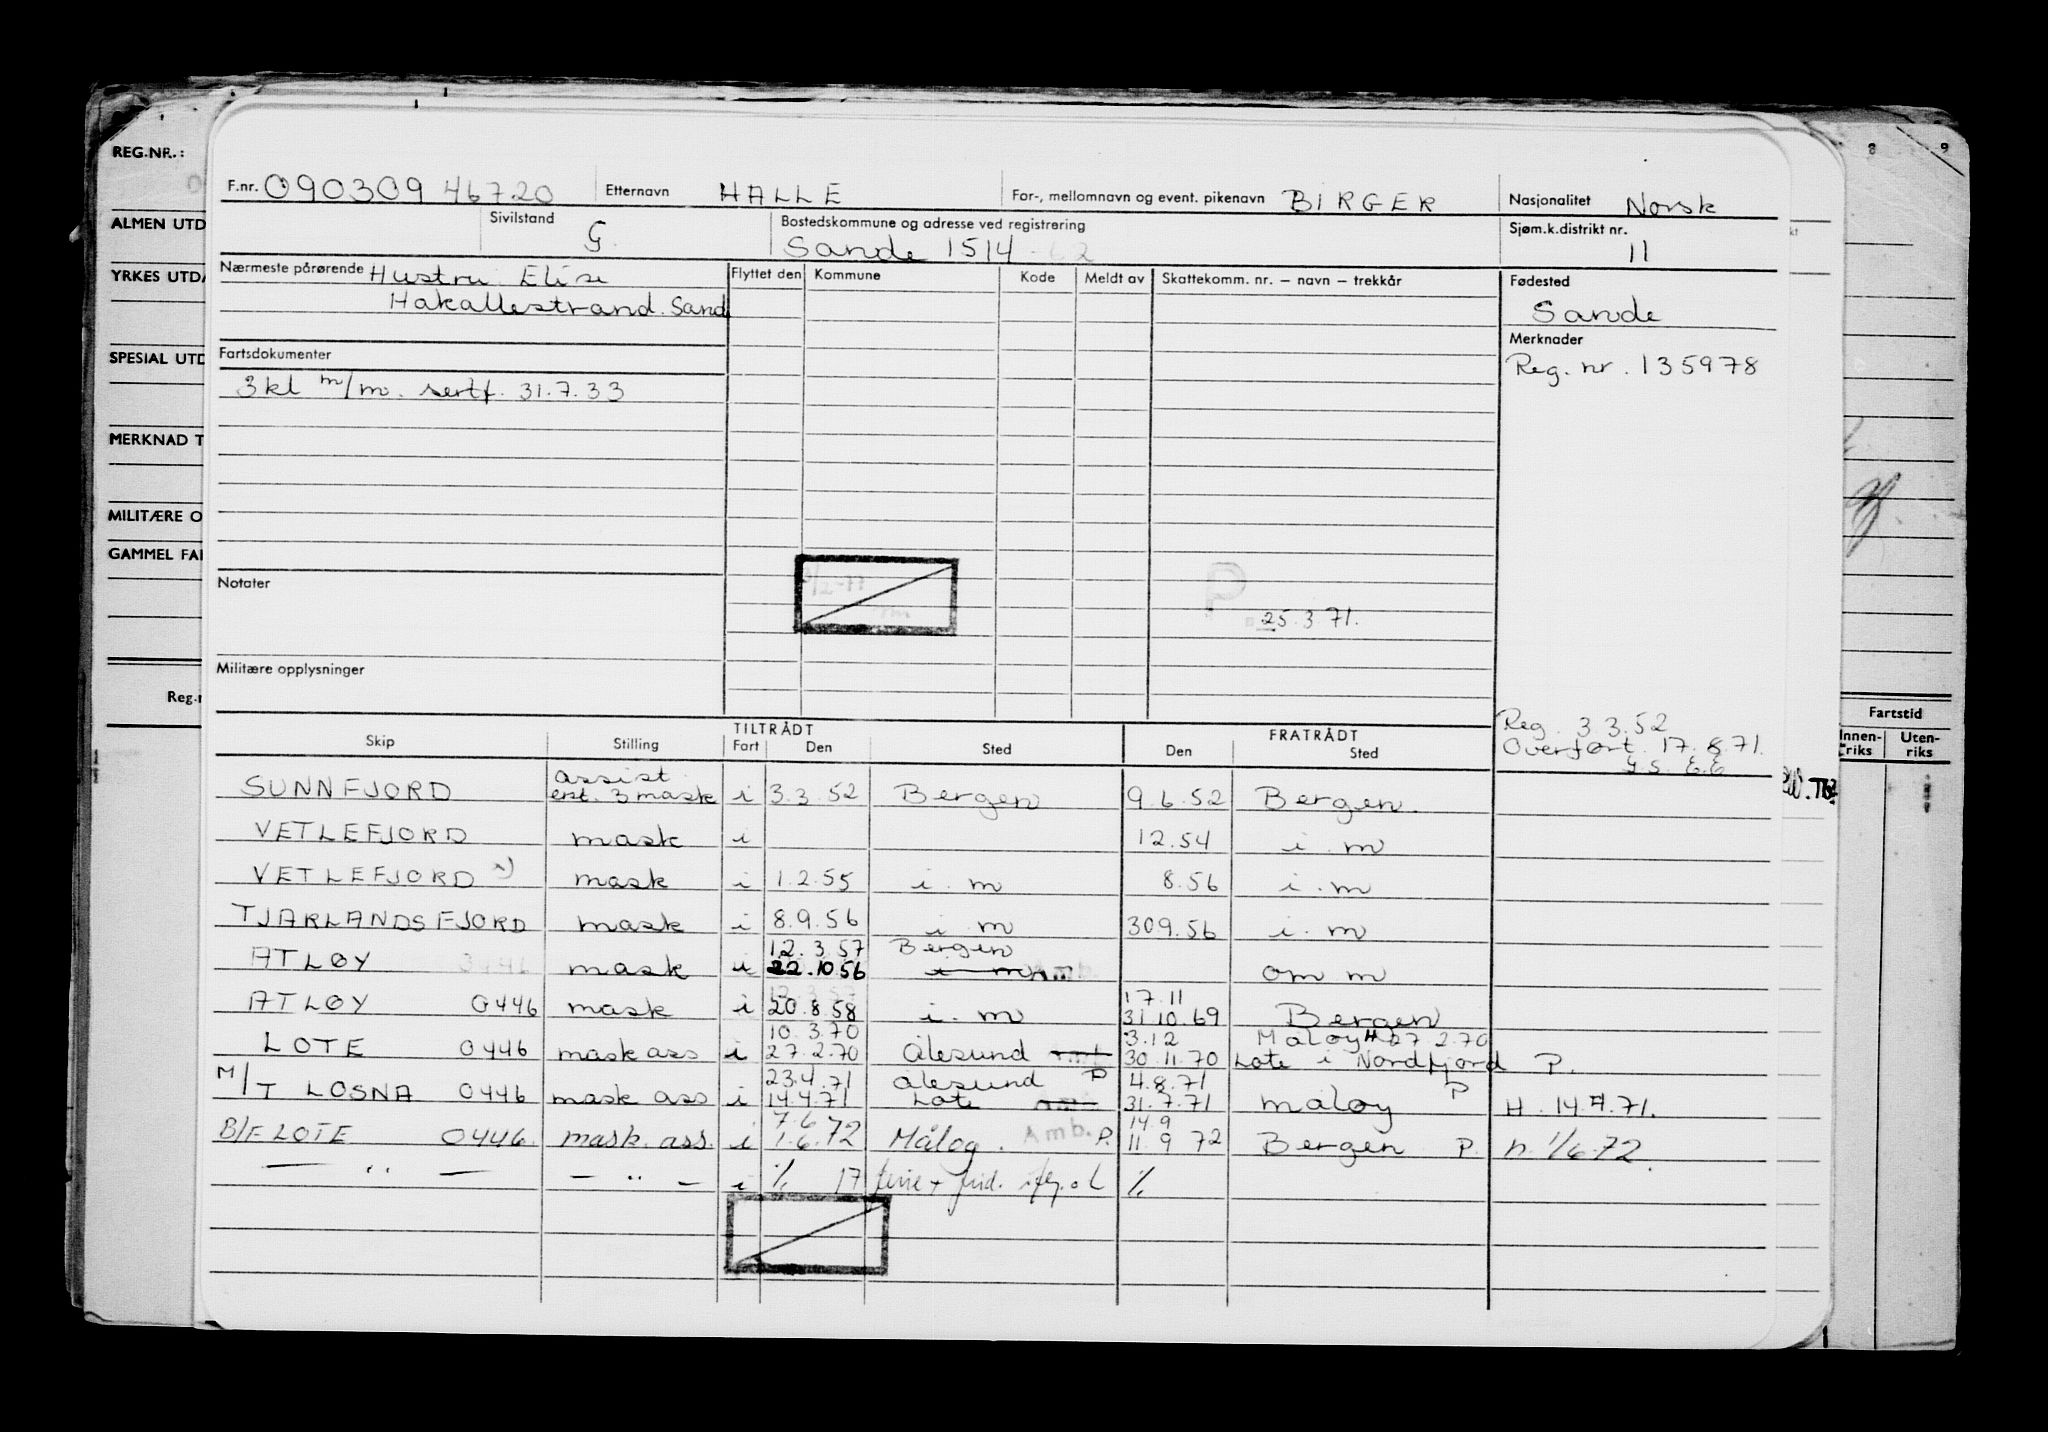 REG.NR.:
8 9
F.nr. 090309 46720 Etternavn HALLE For-, mellomnavn og event. pikenavn BIRGER Nasjonalitet Norsk
ALMEN UTD
Sivilstand G. Bostedskommune og adresse ved registrering Sande 1514 -62 Sjøm.k.distrikt nr. 11
YRKES UTDA
Nærmeste pårørende Hustru Elise
Hakallestrand. Sand
Flyttet den Kommune Kode Meldt av Skattekomm. nr. – navn – trekkår
Fødested
Sande
SPESIAL UTD
Fartsdokumenter
3 kl m/m. sertf. 31.7.33
Merknader
Reg. nr. 135978
MERKNAD T
MILITÆRE O
GAMMEL FAR
Notater
P
25.3.71.
Militære opplysninger
Reg.n
Reg. 3.3.52
Overført. 17.8.71.
Y.S. E.E
Fartstid
Innen-riks Uten-riks
TILTRÅDT FRATRÅDT
Skip Stilling Fart Den Sted Den Sted
SUNNFJORD assist erst. 3 mask i 3.3.52 Bergen 9.6.52 Bergen.
VETLEFJORD mask i 12.54 i.m
VETLEFJORD x) mask i 1.2.55 i.m 8.56 i.m
TJARLANDSFJORD mask i 8.9.56 i.m 309.56 i.m
12.3.57 Bergen
ATLØY 0446 mask i 22.10.56 i m Amb. om m
12.3.57 17.11
ATLØY 0446 mask i 20.8.58 i.m 31.10.69 Bergen
10.3.70 3.12 Måløy H 27.2.70
LOTE 0446 mask ass i 27.2.70 Ålesund Amb 30.11.70 Lote i Nordfjord P.
23.4.71 Ålesund P 4.8.71
M/T LOSNA 0446 mask ass i 14.4.71 Lote 31.7.71 Måløy P H. 14.4.71.
7.6 14.9
B/F LOTE 0446. mask. ass. i 1.6.72 Måløy. Amb. P. 11.9 72 Bergen P. h. 1/6.72.
— " — — " — i %. 17 ferie + frid. %.